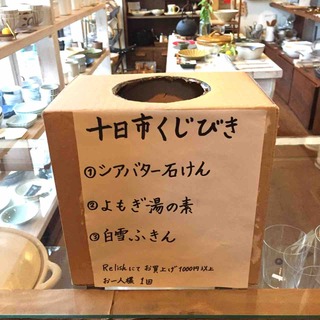 十日市くじびき
①シアバター石けん
②よもぎ湯の素
③白雪ふきん
Relishにて お買上げ1000円以上
お一人様 1回